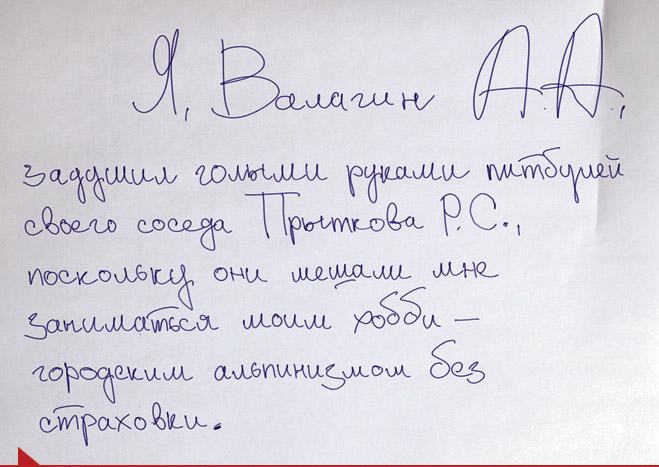 Я, Валагин А.А.,
задушил голыми руками питбулей
своего соседа Прыткова Р.С.,
поскольку они мешали мне
заниматься моим хобби –
городским альпинизмом без
страховки.